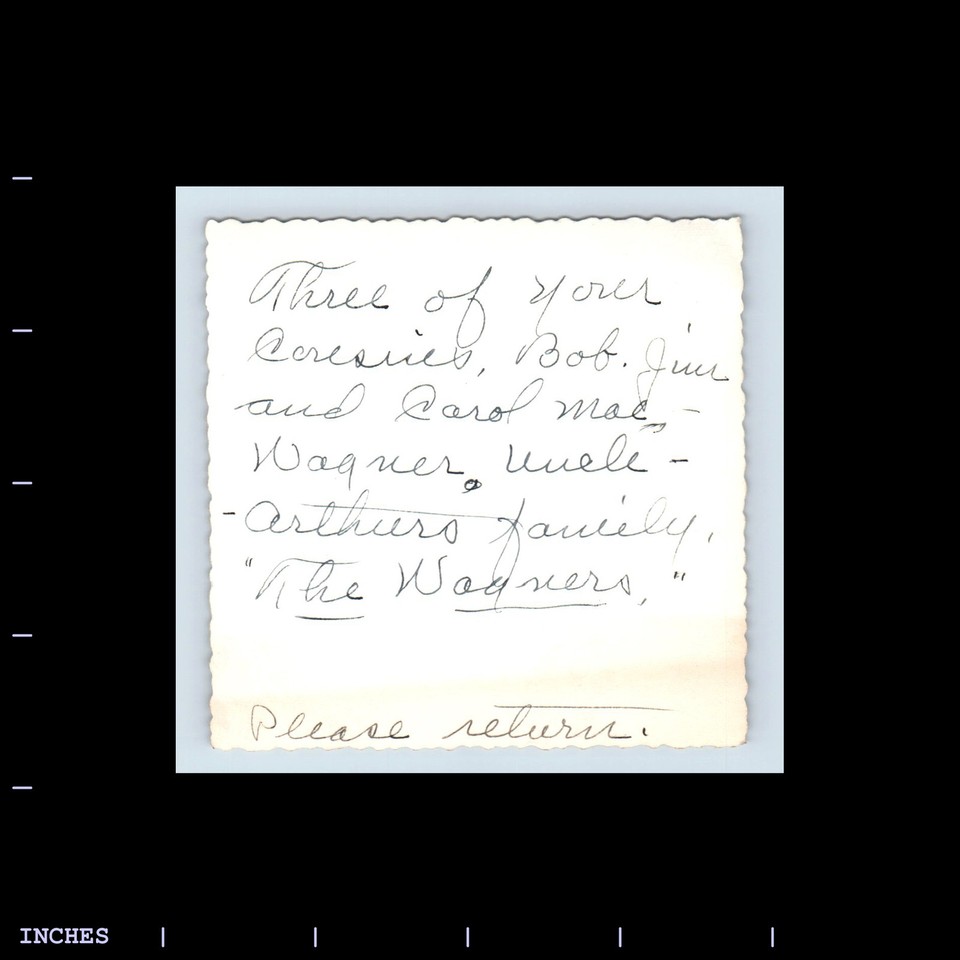 Three of your
Cousins, Bob. Jim
and Carol Mae -
Wagner, Uncle -
- Arthurs family,
"The Wagners,"
Please return.
INCHES